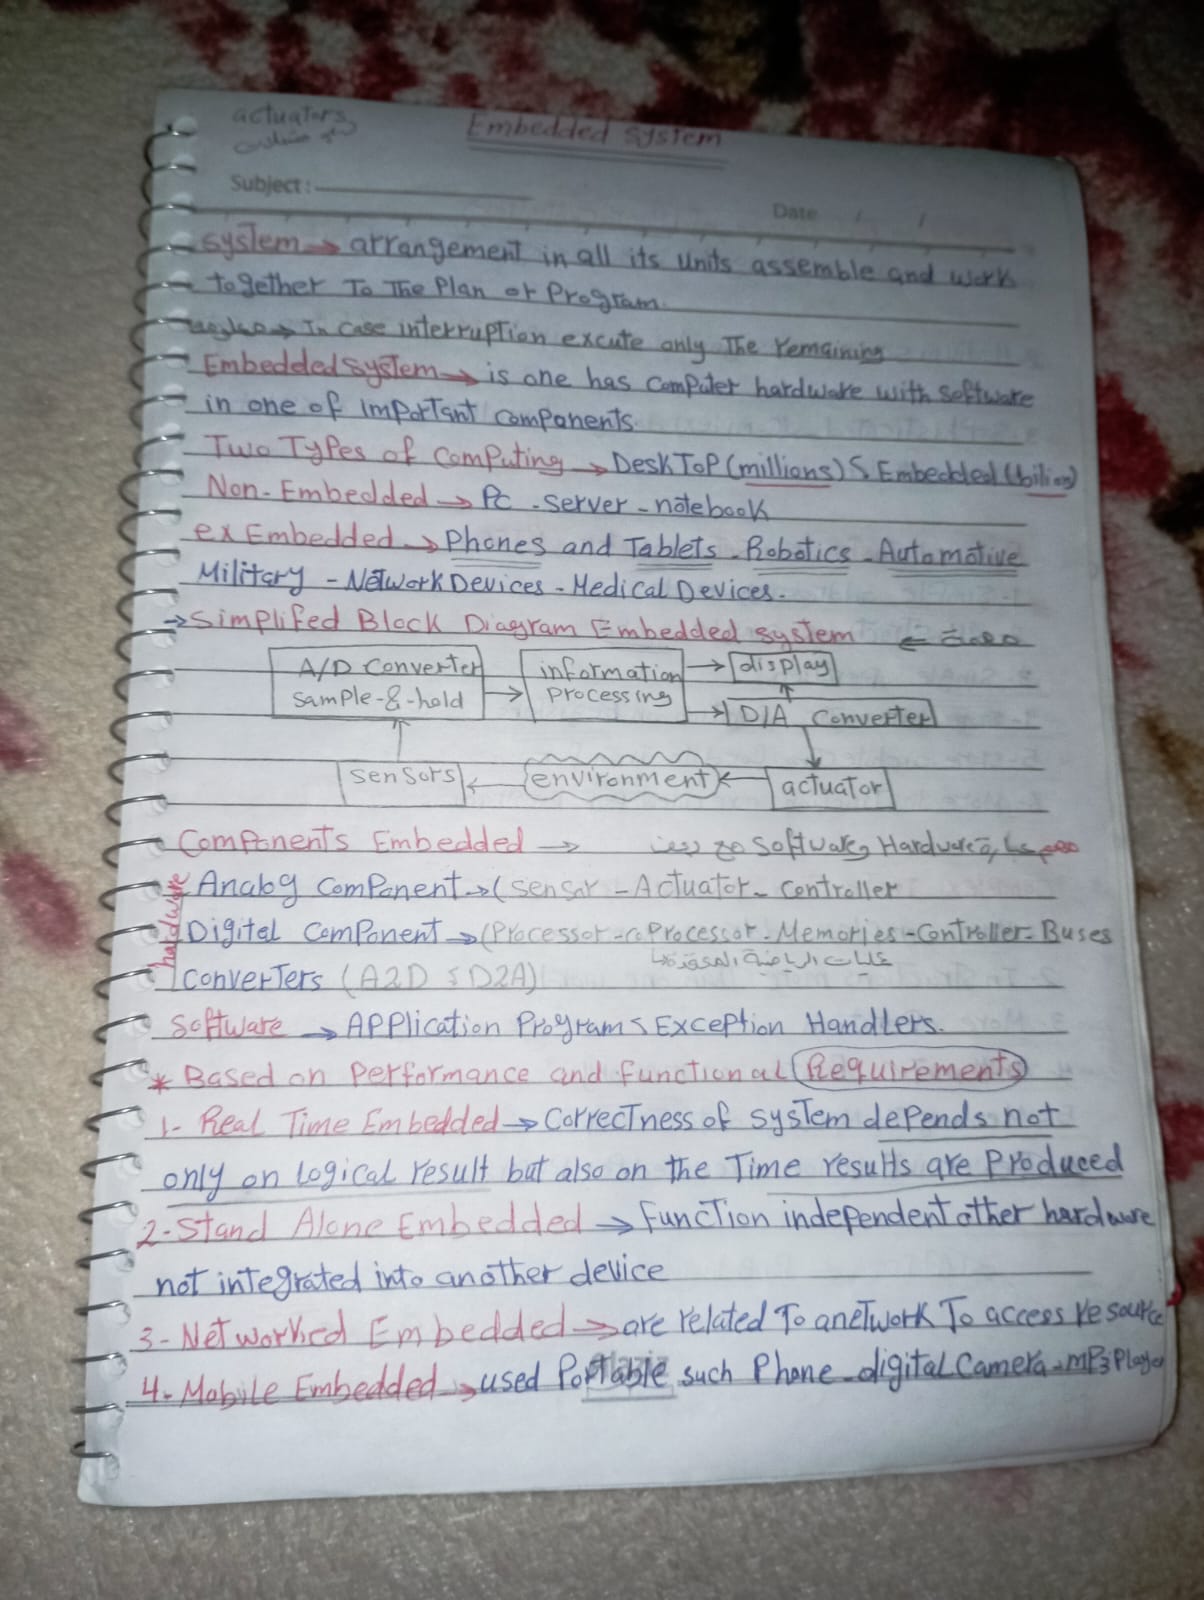 actuators
Embedded system
Subject:
Date / /
system → arrangement in all its units assemble and work
together To The Plan or Program.
→ In case interruption excute only The remaining
Embedded system → is one has computer hardware with software
in one of important components.
Two Types of computing → DeskTop (millions) & Embedded (bilion)
Non-Embedded → Pc - server - notebook
ex Embedded → Phones and Tablets - Robotics - Automotive
Military - Network Devices - Medical Devices.
→ Simplifed Block Diagram Embedded system ←
A/D Converter
sample-&-hold
→ information
processing
→ display
→ D/A converter
sensors ← environment ← actuator
Components Embedded → software, Hardware
hardware
Analog component → (sensor - Actuator - controller
Digital component → (Processor - coProcessor - Memories - Controller - Buses
converters (A2D & D2A)
Software → Application Program & Exception Handlers.
* Based on performance and functional Requirements
1- Real Time Embedded → correctness of system depends not
only on logical result but also on the Time results are Produced
2- Stand Alone Embedded → function independent other hardware
not integrated into another device
3- Networked Embedded → are related To a network To access resource
4- Mobile Embedded → used Portable such Phone - digital Camera - mP3 Player